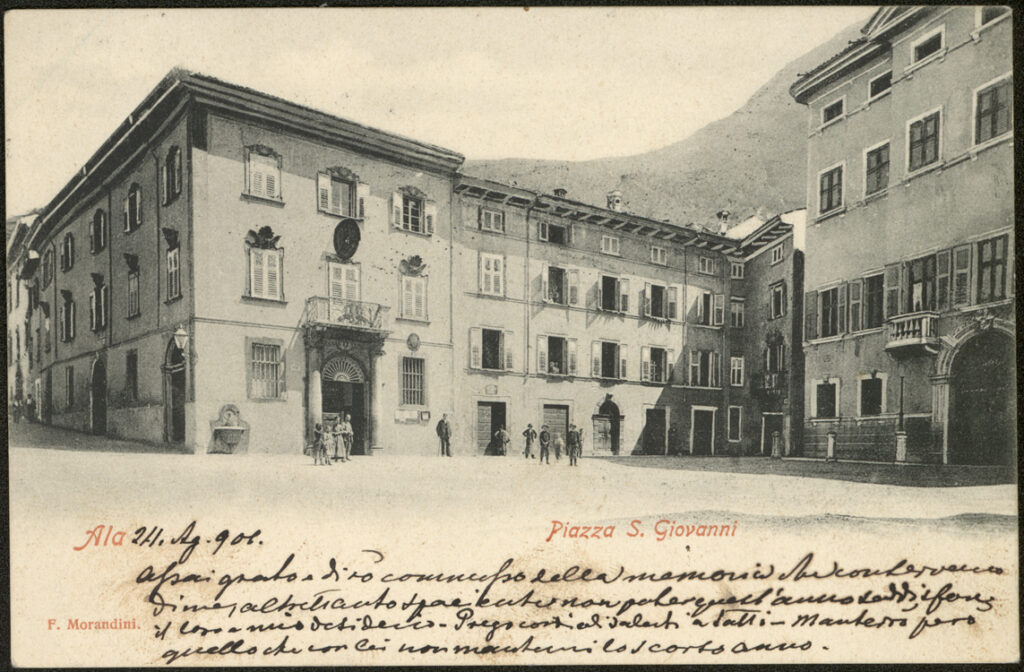 Ala 24. Ag. 906.
Piazza S. Giovanni
Assai grato e dirò commosso della memoria che conservano
di me, altrettanto spiacente non poter quest'anno soddisfare
il loro e mio desiderio - Prego cordiali saluti a tutti - Manterrò però
quello che con lei non mantenni lo scorso anno.
F. Morandini.